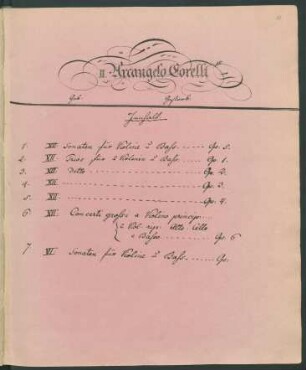 II. Arcangelo Corelli
Geb. Gestorb.
Inhalt.
1. XII. Sonaten für Violine & Bass. ..... Op. 5.
2. XII. Trios für 2 Violinen & Bass ..... Op. 1.
3. XII. ditto ..... Op. 2.
4. XII. ..... Op. 3.
5. XII. ..... Op. 4.
6. XII. Concerti grossi a Violino princip.
2 Viol. rip. Alto. Cello
e Basso ..... Op. 6
7. VI. Sonaten für Violine & Bass. ..... Op.